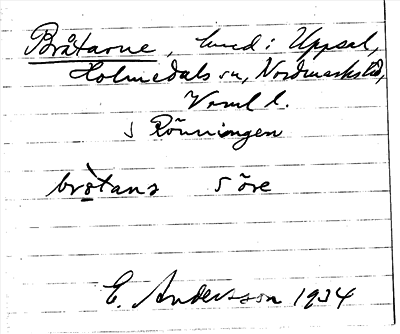 Bråtarne, hmd i Uppsal,
Holmedals sn, Nordmarks hd,
Vrml l.
s Rönningen
bròtana s öre
E. Andersson 1934